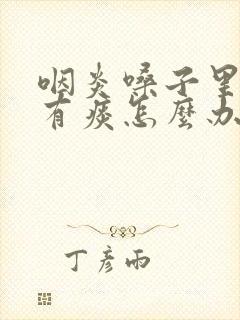 咽炎嗓子里
有痰怎麽办
丁彦雨